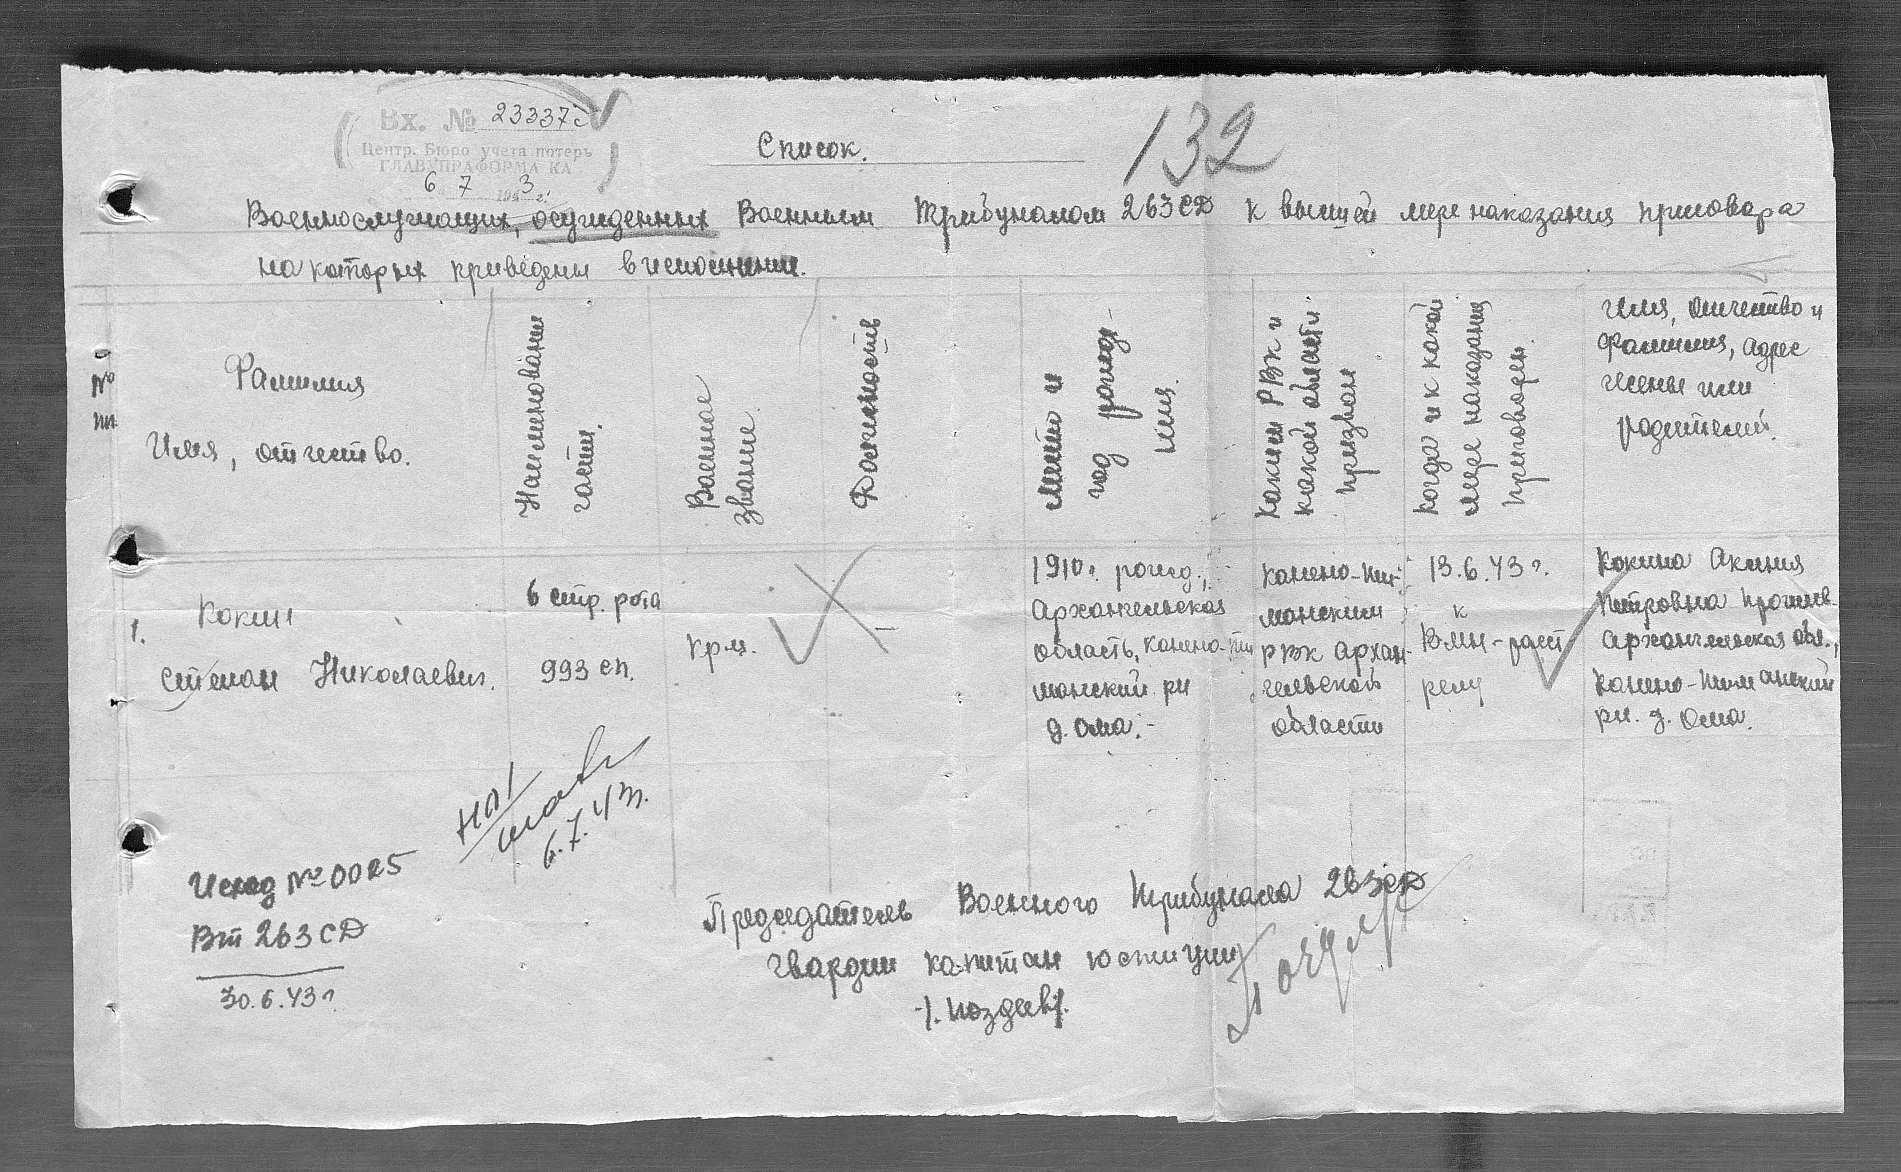 Вх. № 23337с
Центр. Бюро учета потерь
ГЛАВУПРАФОРМА КА
6 7 1943 г.
132
Список.
Военнослужащих, осужденных Военным Трибуналом 263 СД к высшей мере наказания приговора
на которых приведены в исполнение.
№
пп
Фамилия
Имя, отчество.
Наименование
части.
Военное
звание
Должность
Место и
год рожде-
ния.
Каким РВК и
какой области
призван
Когда и к какой
мере наказания
приговорен.
Имя, отчество и
Фамилия, адрес
жены или
родителей.
1. Кокин
Степан Николаевич.
6 стр. рота
993 сп.
Кр-ц.
–
1910 г. рожд.,
Архангельская
область, Канено-Ти
манский рн
д. Ома. -
Канено-Тим
манским
РВК Архан-
гельской
области
13.6.43 г.
к
ВМН - расст
релу
Кокина Акиния
Петровна прожив.
Архангельская обл.,
Канено-Тиманский
рн. д. Ома.
6.7.43г.
Исход № 0025
Вт 263 СД
30.6.43 г
Председатель Военного Трибунала 263 СД
гвардии капитан юстиции
-/. Поздеев/.